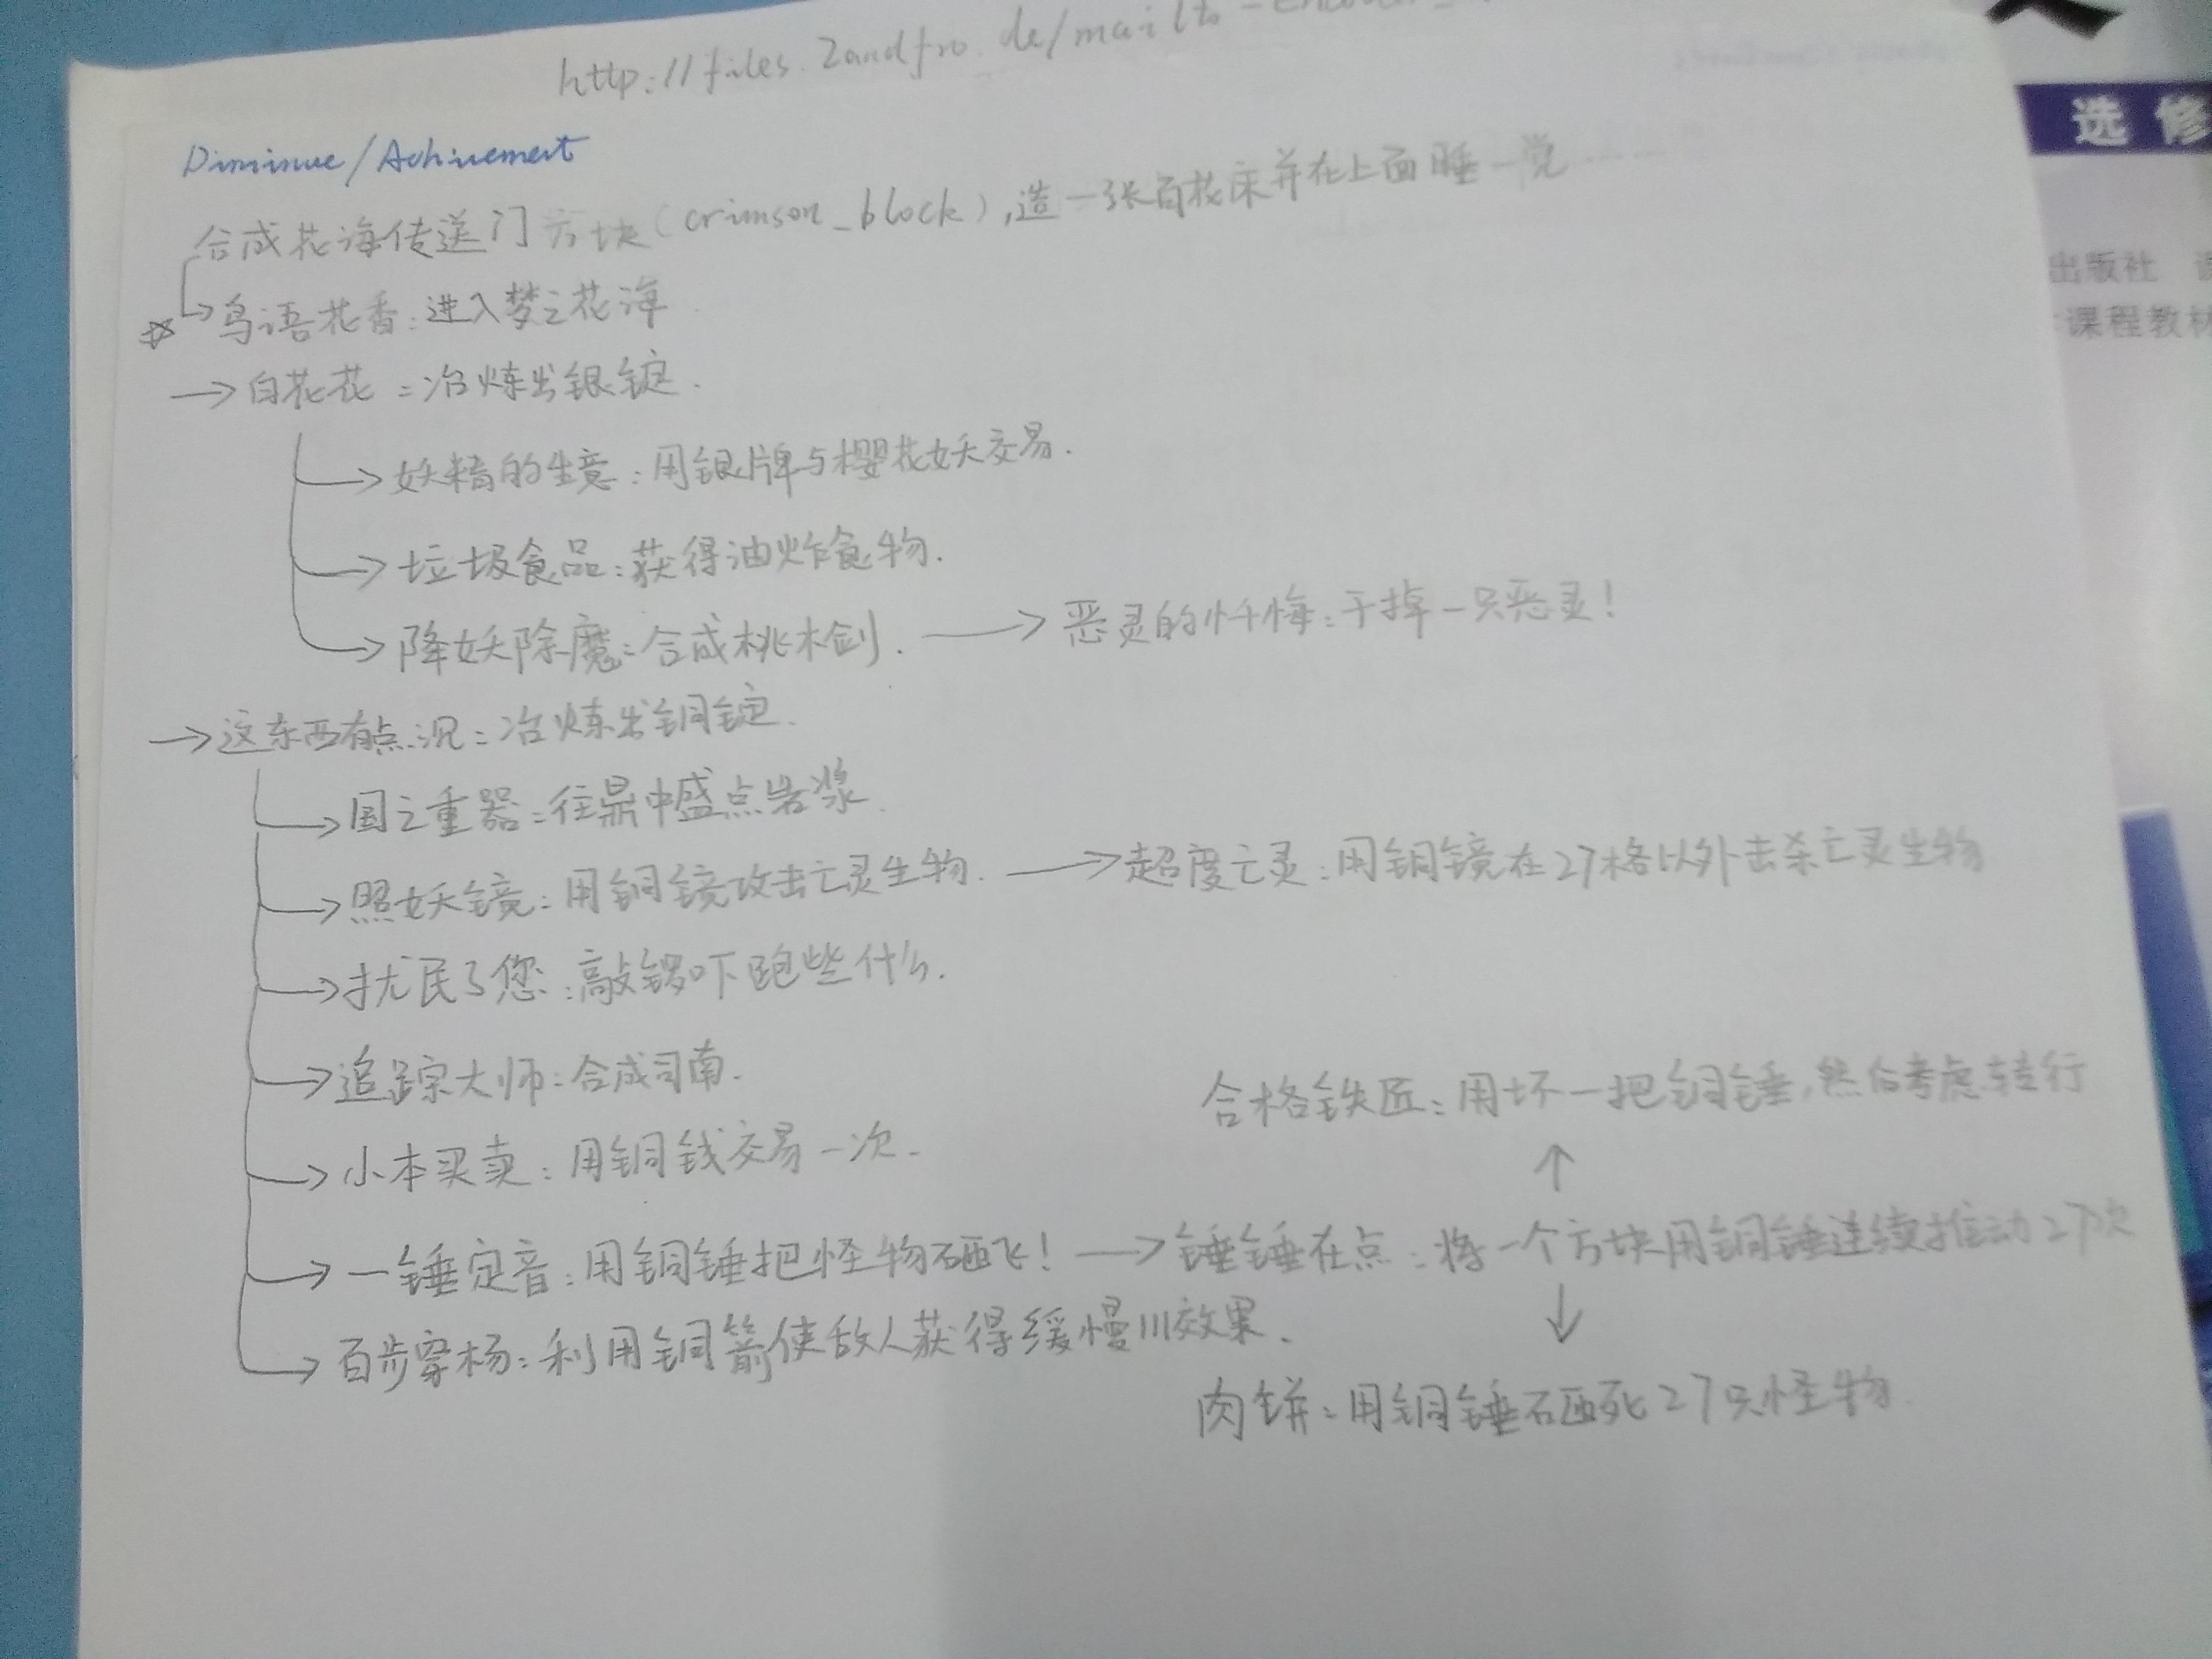 http://files.2andfro.de/mailto-encoder_
Diminue/Achivement
合成花海传送门方块(crimson_block),造一张百花床并在上面睡一觉……
鸟语花香:进入梦之花海
→白花花:冶炼出银锭.
→妖精的生意:用银牌与樱花妖交易.
→垃圾食品:获得油炸食物.
→降妖除魔:合成桃木剑. →恶灵的忏悔:干掉一只恶灵!
→这东西有点沉:冶炼出铜锭.
→国之重器:往鼎中盛点岩浆.
→照妖镜:用铜镜攻击亡灵生物. →超度亡灵:用铜镜在27格以外击杀亡灵生物
→扰民了您:敲锣吓跑些什么.
→追踪大师:合成司南.
合格铁匠:用坏一把铜锤,然后考虑转行
→小本买卖:用铜钱交易一次.
→一锤定音:用铜锤把怪物砸飞! →锤锤在点:将一个方块用铜锤连续推动27次
→百步穿杨:利用铜箭使敌人获得缓慢III效果.
肉饼:用铜锤砸死27只怪物.
选修
出版社
课程教材